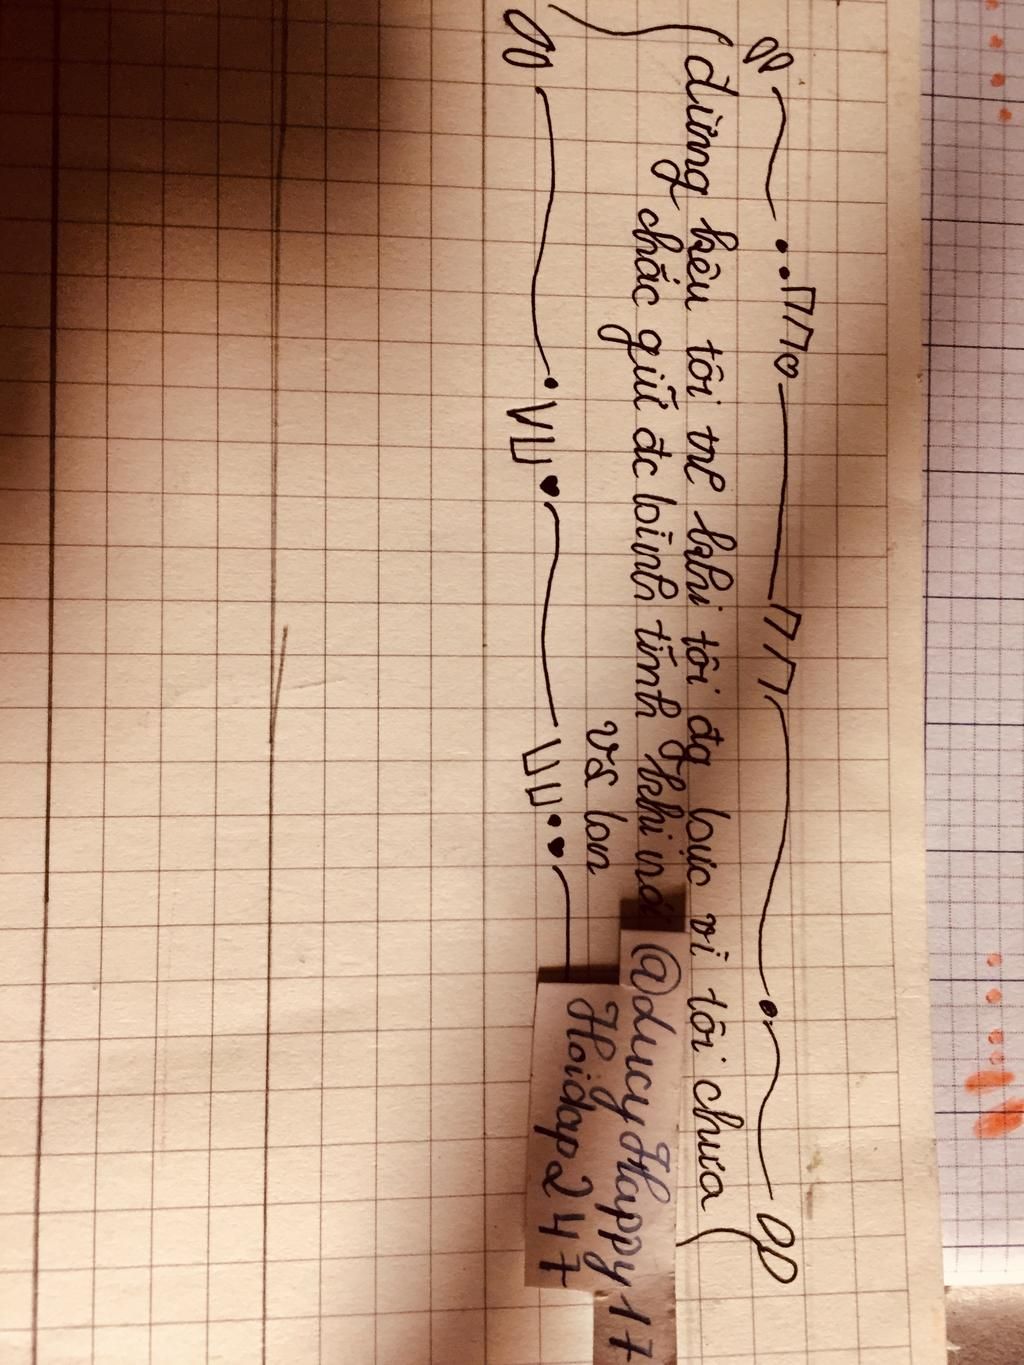 đừng kêu tôi trẻ khi tôi đg lực vì tôi chưa
chắc giữ đc bình tĩnh khi nói
vs lon
@ducyHappy17
Hoidap247